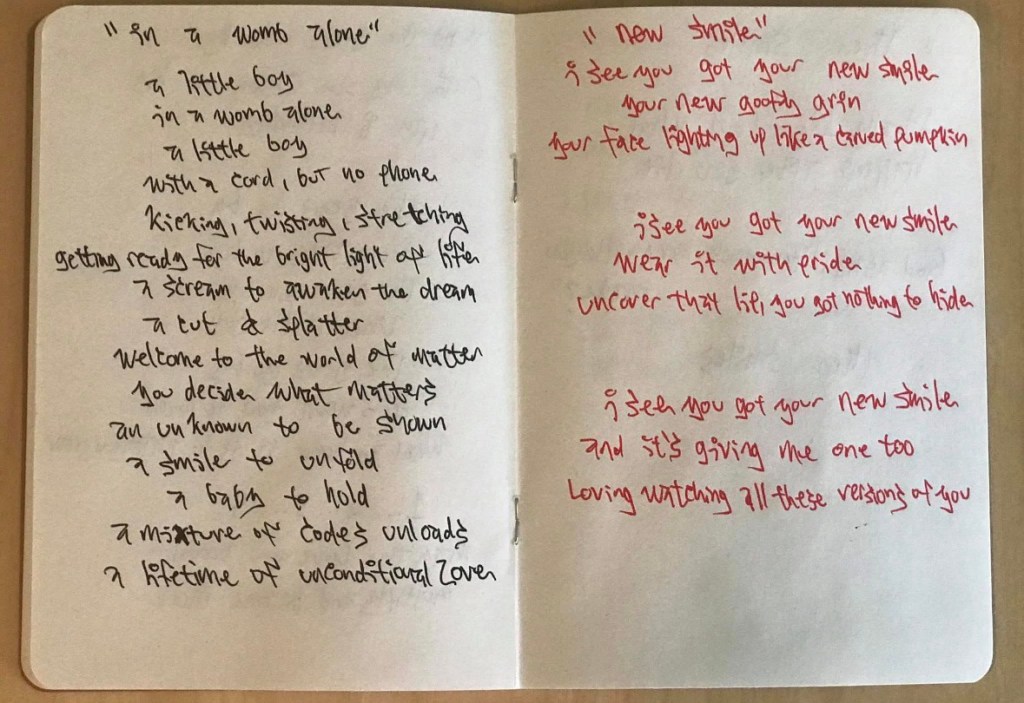 "in a womb alone"
a little boy
in a womb alone
a little boy
with a cord, but no phone
kicking, twisting, stretching
getting ready for the bright light of life
a scream to awaken the dream
a cut & splatter
welcome to the world of matter
you decide what matters
an unknown to be shown
a smile to unfold
a baby to hold
a mixture of codes unloads
a lifetime of unconditional Love
"new smile"
i see you got your new smile
your new goofy grin
your face lighting up like a carved pumpkin
i see you got your new smile
wear it with pride
uncover that lip, you got nothing to hide
i see you got your new smile
and it's giving me one too
Loving watching all these versions of you